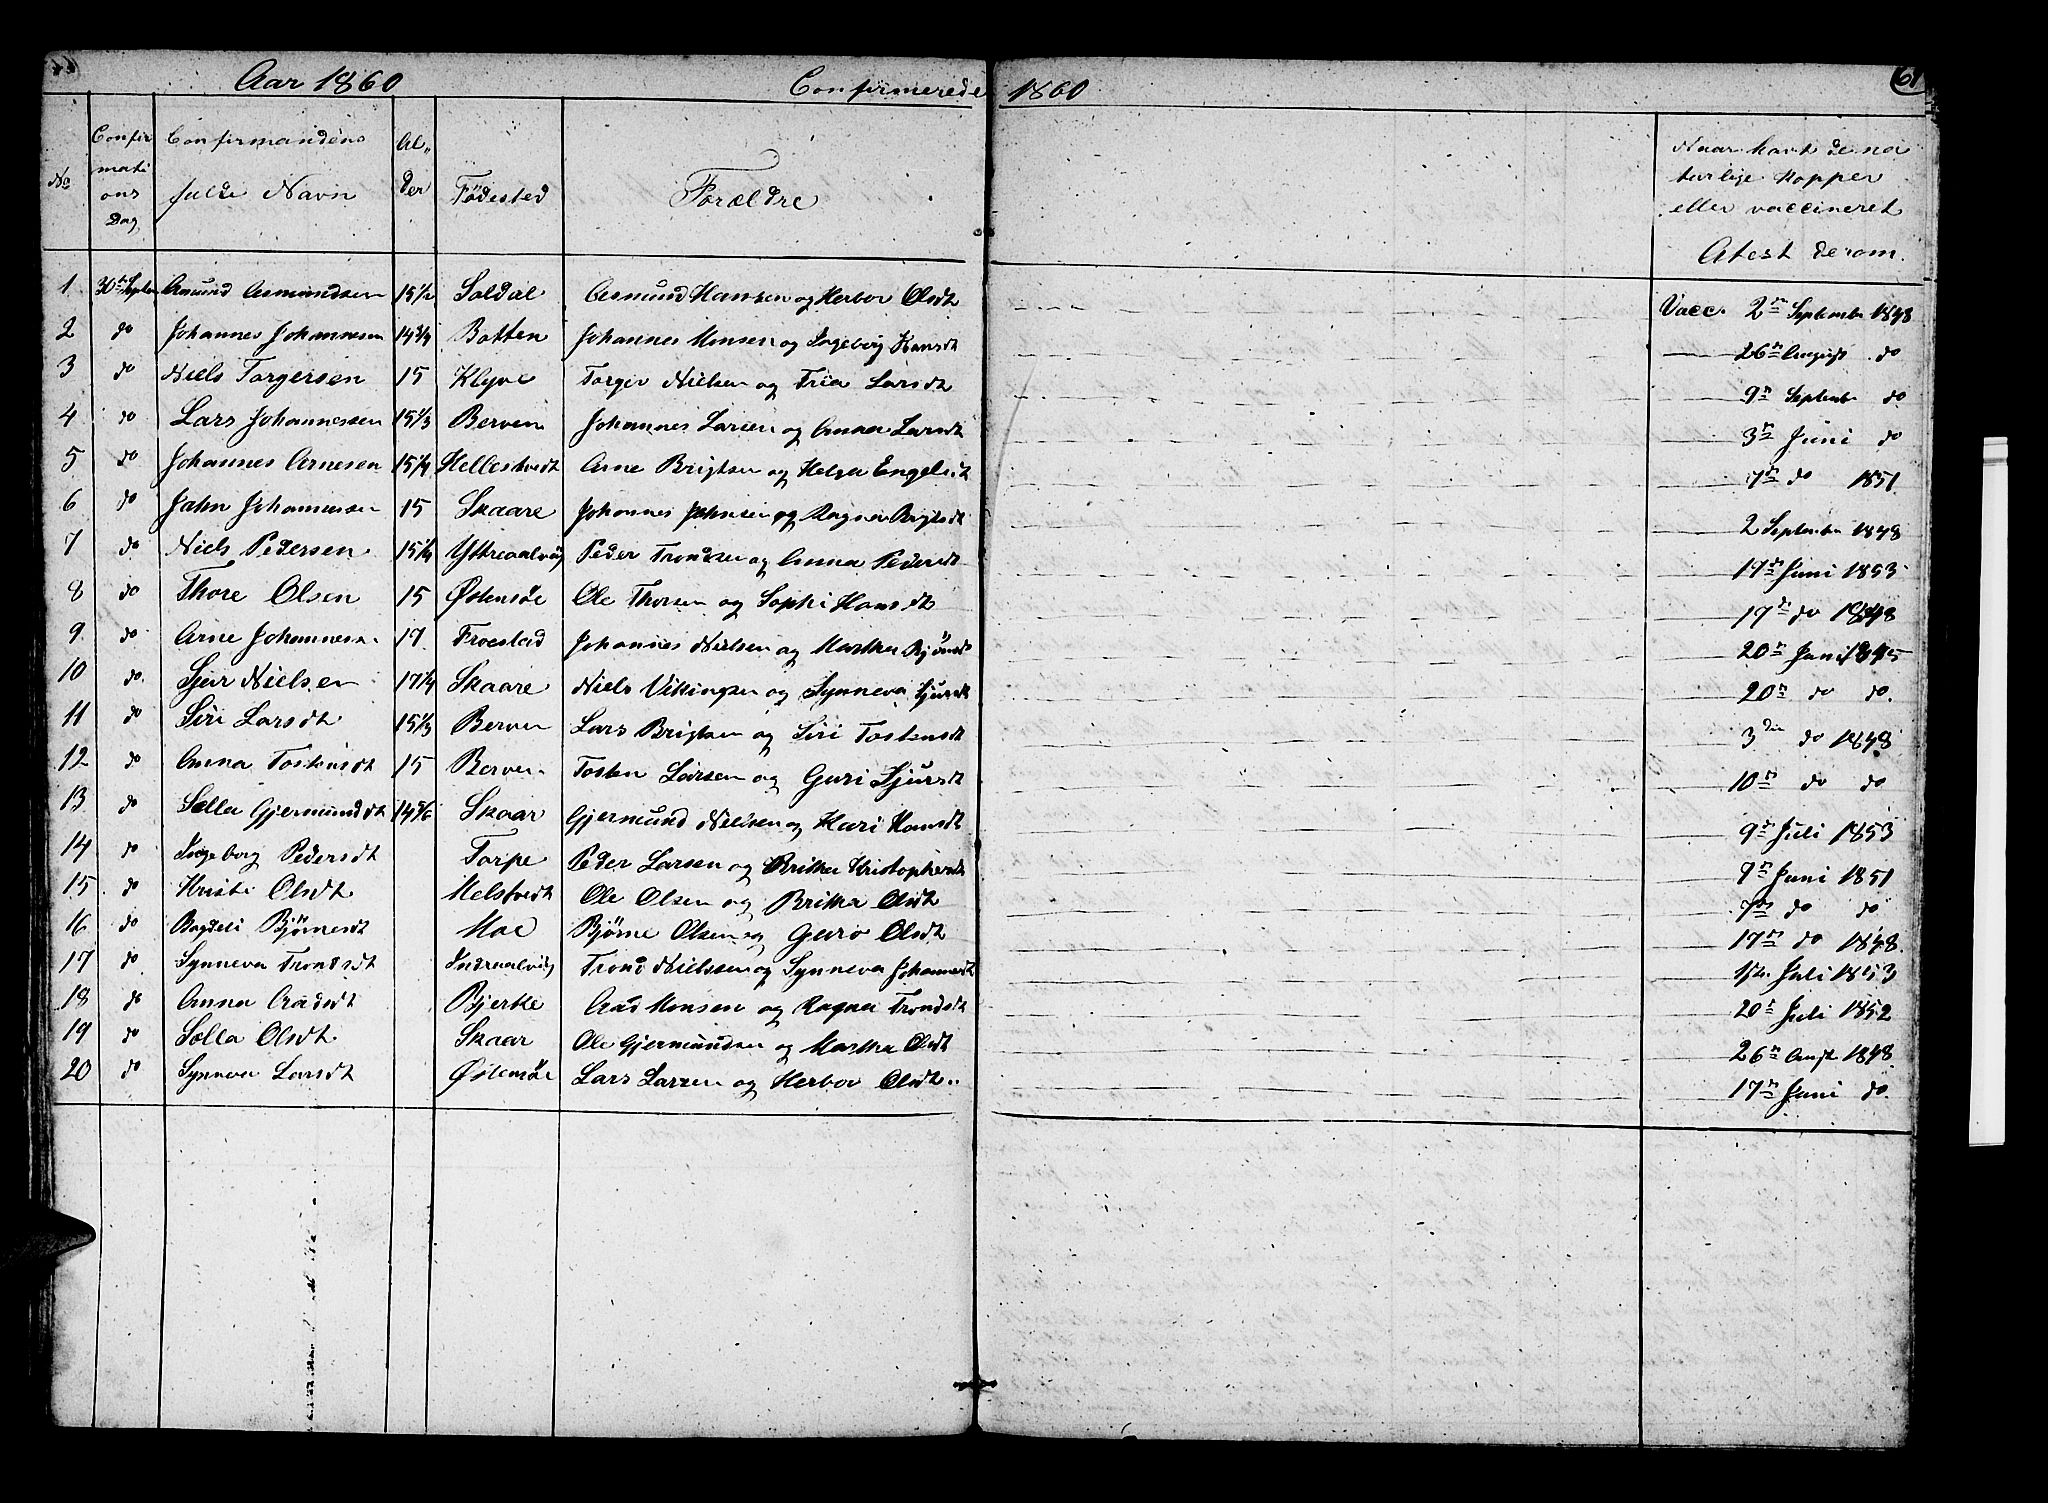 Aar 1860 Confirmerede 1860 61
No Confirmations Dag Confirmandens fulde Navn Alder Fødested Forældre Naar havt de naturlige Kopper eller vaccineret Atest derom.
1 30te Septbr Asmund Asmundsen 15½ Soldal Asmund Hansen og Herbor Olsdt Vacc. 2den September 1848
2 do Johannes Johannesen 14¾ Botten Johannes Monsen og Ingeborg Hansdt 26de August do
3 do Niels Torgersen 15 Klyve Torger Nielsen og Larsdt 9de September do
4 do Lars Johannessen 15⅓ Berven Johannes Larsen og Anna Larsdt 3de Juni do
5 do Johannes Arnesen 15¼ Hellestvedt Arne Brigtsen og Helga Engelsdt 7de do 1851
6 do John Johannessen 15 Skaare Johannes Johnsen og Ragna Brigtsdt 2 September 1848
7 do Niels Pedersen 15¼ Yttreaalvig Peder Trondsen og Anna Pedersdt 17de Juni 1853
8 do Thore Olsen 15 Østensøe Ole Thorsen og Sophi Hansdt 17de do 1848
9 do Arne Johannesen 17 Froestad Johannes Nielsen og Martha Bjönsdt 20de Juni 1845
10 do Sjur Nielsen 17¼ Skaare Niels Vikingsen og Synneva Sjursdt 20de do do
11 do Siri Larsdt 15⅓ Berven Lars Brigtsen og Siri Tostensdt 3die do 1848
12 do Anna Tostensdt 15 Berven Tosten Larsen og Guri Sjursdt 10de do do
13 do Sella Gjermundsdt 14⅚ Skaar Gjermund Nielsen og Kari Hansdt 9de Juli 1853
14 do Ingeborg Pedersdt Torpe Peder Larsen og Britha Kristophersdt 7de Juni 1851
15 do Kristi Olsdt Melstvedt Ole Olsen og Britha Olsdt 7de do do
16 do Bagdeli Björnesdt Moe Björne Olsen og Guro Olsdt 17de do 1848.
17 do Synneva Trondsdt Indreaalvig Trond Nielssen og Synneva Johannesdt Juli 1853
18 do Anna Aadsdt Bjerke Aad Monsen og Ragna Trondsdt 20de Juli 1852
19 do Sella Olsdt Skaar Ole Gjermundsen og Martha Olsdt 26de Augst 1848
20 do Synneva Larsdt Østensøe Lars Larsen og Herbor Olsdt 17de Juni do